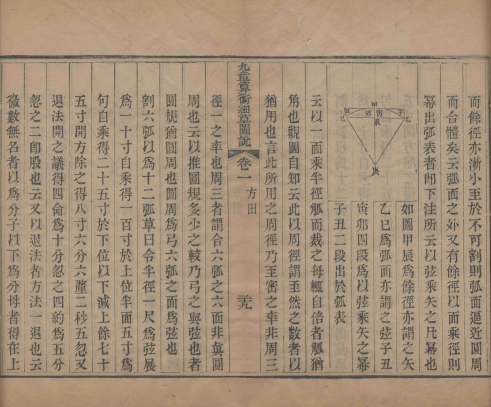 而餘徑亦漸小至於不可割則弧面逼近圓周
而合體矣云弧面之外又有餘徑以面乘徑則
冪出弧表者卽下法所云以弦乘矢之凡冪也
如圖甲辰爲餘徑亦謂之矢
乙巳爲弧面亦謂之弦子丑
寅卯四段爲以弦乘矢之冪
子丑二段出於弧表
云以一面乘半徑觚而裁之每輒自倍者觚猶
角也觀圖自知云此以周徑謂至然之數者以
猶用也言此所用之周徑乃至密之率非周三
九章算術細草圖說 卷一 方田
徑一之率也周三者謂合六弧之六面非真圓
周也云以推圓規多少之較乃弓之與弦也者
圓規猶圓周也圓周爲弓六弧之面爲弦也
割六弧以爲十二弧草曰令半徑一尺爲弦展
爲一十寸自乘得一百寸於上位半面五寸爲
句自乘得二十五寸於下位以下減上餘七十
五寸開方除之得八寸六分六釐二秒五忽又
退法開之議得四命爲十分忽之四約爲五分
忽之二卽股也云又以退法者方法一退也云
微數無名者以爲分子以下爲分母者得在上